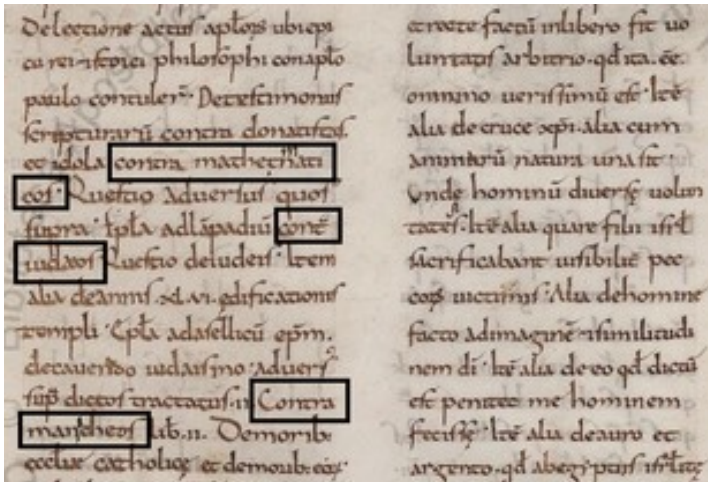 De lectione actus apl̄ors ubi epi
cu rei et stoici philosophi con apl̄o
paulo contuler̄. De testimoniis
scripturarū contra donatistas.
et idola contra mathemati
cos. Questio adversus quos
supra. Ep̄la ad lāpadiū cont̄
iudaeos Questio de iudeis. Item
alia de annis .xl.vi. ędificationis
templi. Ep̄la ad asellicū ep̄m.
de cavendo iudaismo. advers
sup̄ dictos tractatus .ii. Contra
manicheos lib. ii. De morib:
ecclae catholicę et de morib: eoȝ.
et recte factū in libero sit uo
luntatis arbitrio. qd̄ ita. eē.
omnino uerissimū est. Itē
alia de cruce xp̄i. alia cum
animarū natura una sit.
Unde hominū diverse uolun
tates. Itē alia quare filii isr̄l
sacrificabant uisibiliē pec
coȝ uictimis. Alia de homine
facto ad imaginē et similitudi
nem dī. Itē alia de eo qd̄ dictū
est penitet me hominem
fecisse. Itē alia de auro et
argento. qd̄ ab egyptiis isr̄litę